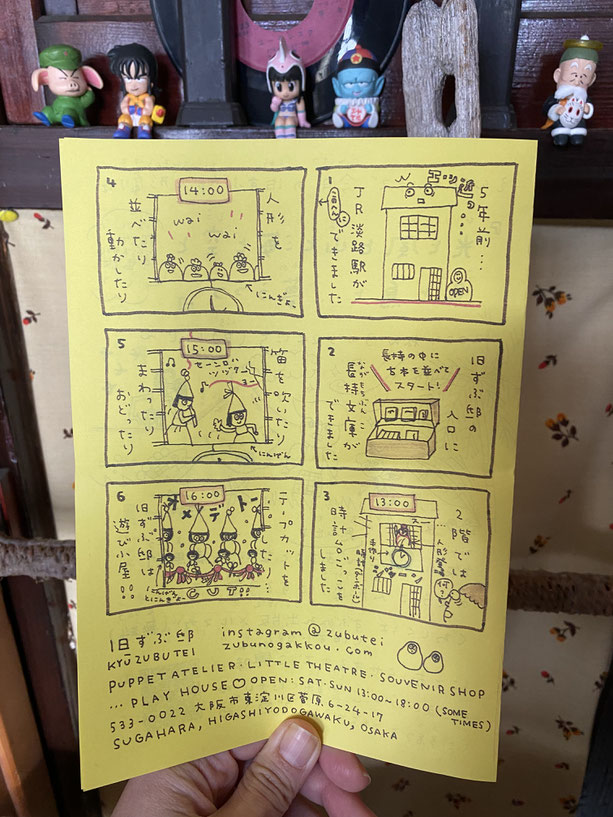 1
5年前…
JR淡路駅が
できました
OPEN
2
旧ずぶ邸の
入口に
長持の中に
古本を並べて
スタート!
長持文庫が
ながもちぶんこ
できました
3
13:00
2階では
人形登場
スー…
何?
手作り
時計台ごっこを
しました
4
14:00
人形を
wai
wai
並べたり
動かしたり
にんぎょー
5
15:00
笛を吹いたり
まわったり
おどったり
にんげん
6
16:00
テープカットを
オメデトー
旧ずぶ邸は
遊び小屋!!
にんげん
とにんぎょー
CUT!!
旧ずぶ邸
KYŪZUBUTEI
instagram@zubutei
zubunogakkou.com
PUPPET ATELIER・LITTLE THEATRE・SOUVENIR SHOP
… PLAY HOUSE♡OPEN: SAT・SUN 13:00~18:00 (SOME TIMES)
533-0022 大阪市東淀川区菅原 6-24-17
SUGAHARA, HIGASHIYODOGAWAKU, OSAKA